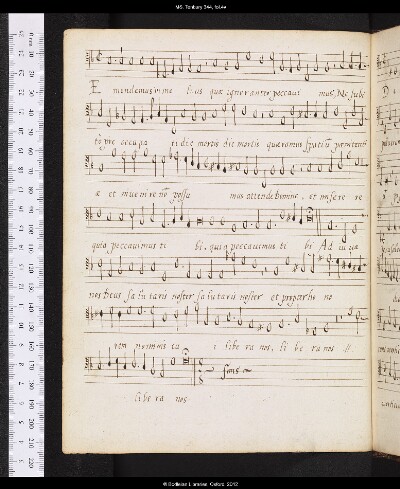 MS. Tenbury 344, fol.4v
E mendemus in me lius quæ ignoranter peccavi mus, Ne subi
to præ occupa ti die mortis die mortis quæramus spatiũ pœnitenti
æ et invenire nõ possu mus attende domine, et misere re
quia peccavimus ti bi, quia peccavimus ti bi Ad iu va
nos Deus sa lu taris noster sa lu taris noster et propter ho no
rem nominis tu i libe ra nos, li be ra nos
libe ra nos
finis
© Bodleian Libraries, Oxford, 2012